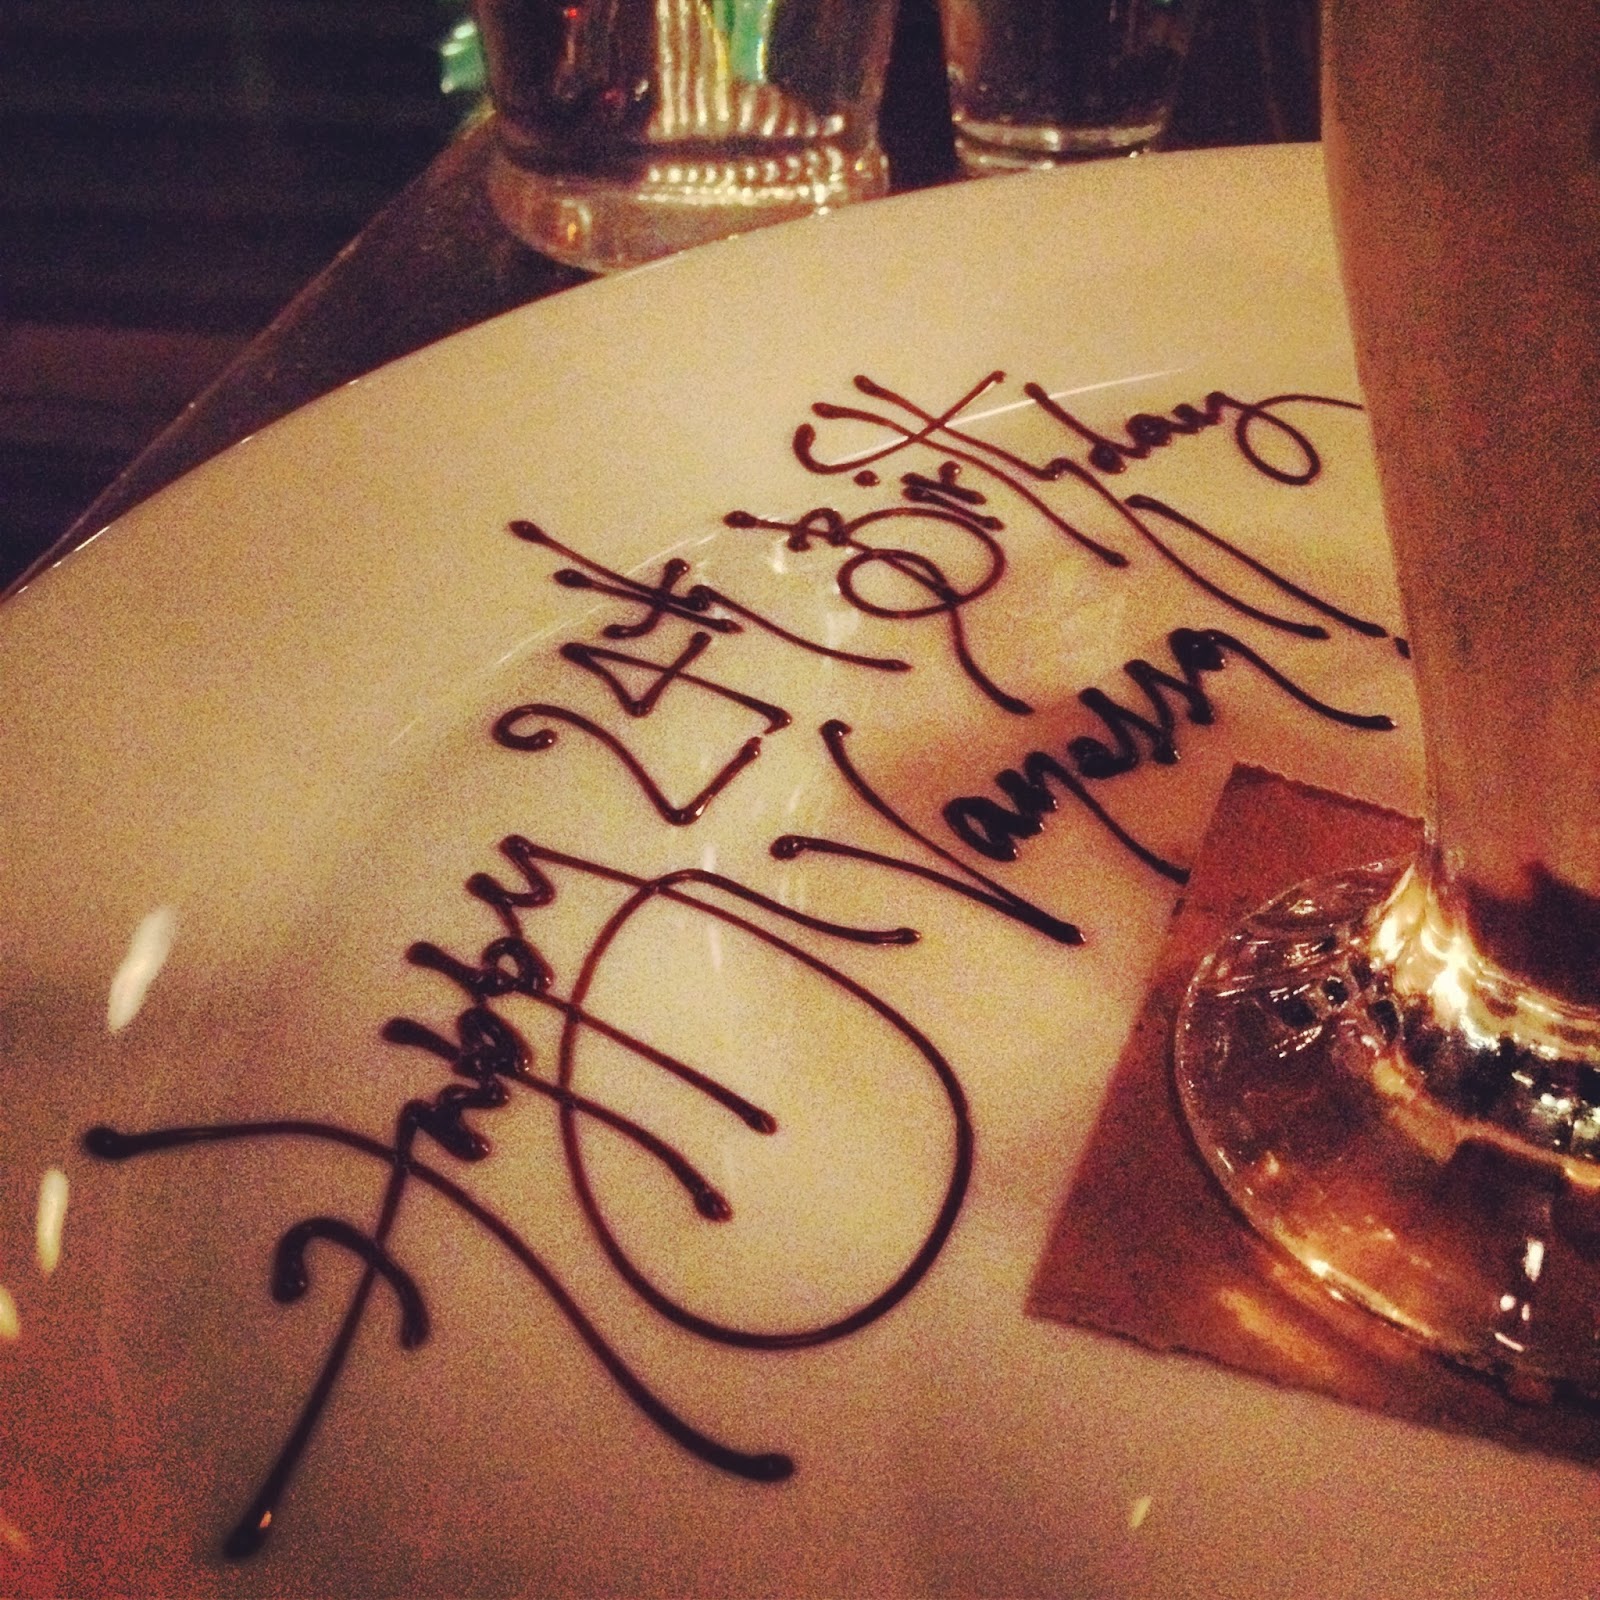 Happy 24th Birthday
Vanessa